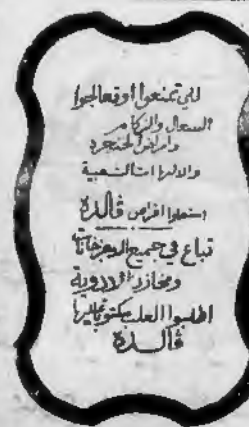 لكي تمنعوا أو تعالجوا
السعال والزكام
وامراض الحنجرة
والالتهابات الشعبية
استعملوا اقراص ڤالدة
تباع في جميع الاجزخانات
ومخازن الادوية
اطلبوا العلب مكتوب عليها
ڤالدة